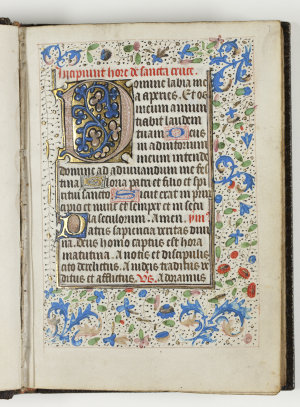 Incipiunt hore de sancta cruce.
Domine labia me
a aperies. Et os
meum annun
tiabit laudem
tuam Deus
in adiutorium
meum intende
domine ad adiuvandum me fes
tina Gloria patri et filio et spi
ritui sancto Sicut erat in prin
cipio et nunc et semper et in secu
la seculorum. Amen. ym
Patris sapiencia veritas divi
na. Deus homo captus est hora
matutina. A notis et discipulis
cito derelictus. A iudeis traditus ve
ditus et afflictus. Vs. Adoramus